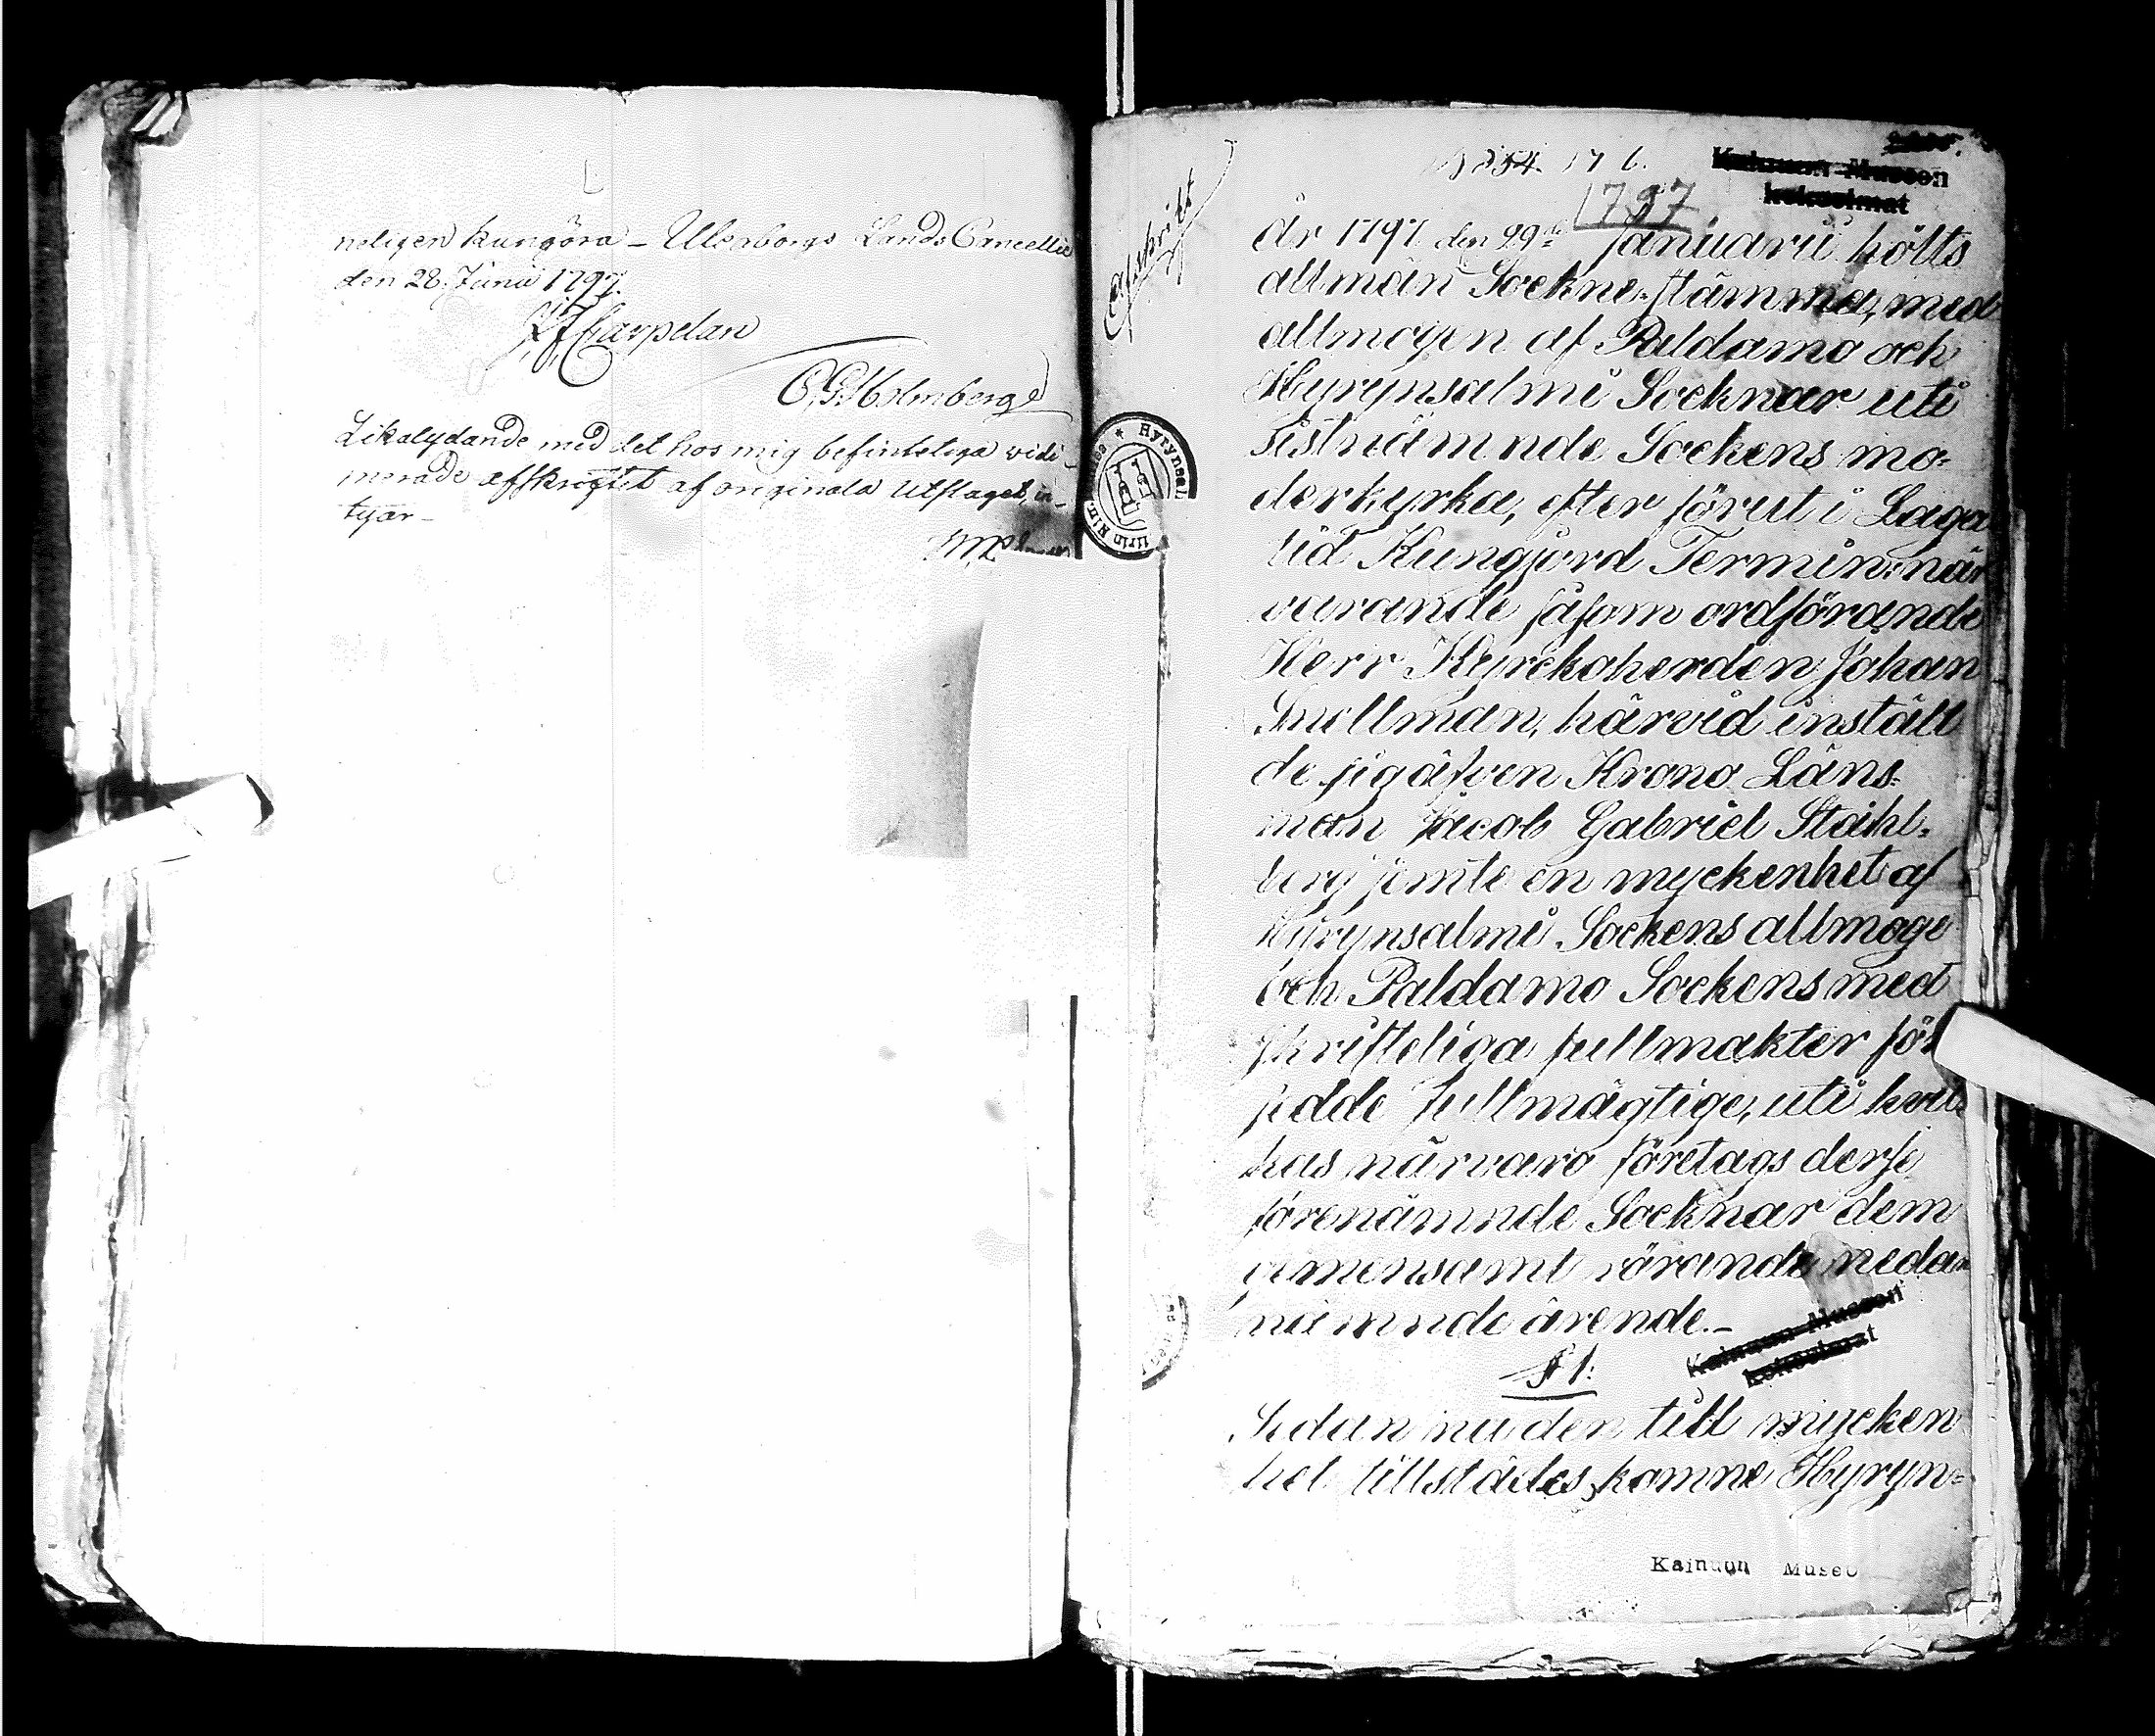 neligen kungöra – Uleaborgs Lands Cancellie
den 28. Junii 1797.
Carpelan
C. G. Holmberg
Likalydande med det hos mig befinteliga vidi-
merade affskriftet af originala Utslaget, in-
tygar –
Afskrift
1797
år 1797 den 29de Januarii hölts
allmän Sockne-stämma, med
allmogen af Paldamo och
Hyrynsalmi Socknar uti
sistnämnde Sockens mo-
derkyrka, efter förut i Laga
tid Kungjord Termin: när
varande såsom ordförande
Herr Kyrckoherden Johan
Snellman, härvid inställ
de sig äfven Krono Läns-
man Jacob Gabriel Ståhl-
berg jemte en myckenhet af
Hyrynsalmi Sockens allmoge
och Paldamo Sockens med
skrifteliga fullmakter för
sedde Fullmägtige, uti hvil-
kas närvaro företags desse
förenämnde Socknar dem
gemensamt rörande nedan
nämnde ärende. –
Kainuun Museon
kokoelmat
§ 1:
Sedan nu den till mycken
het tillstädes komne Hyryn-
Kainuun Museo